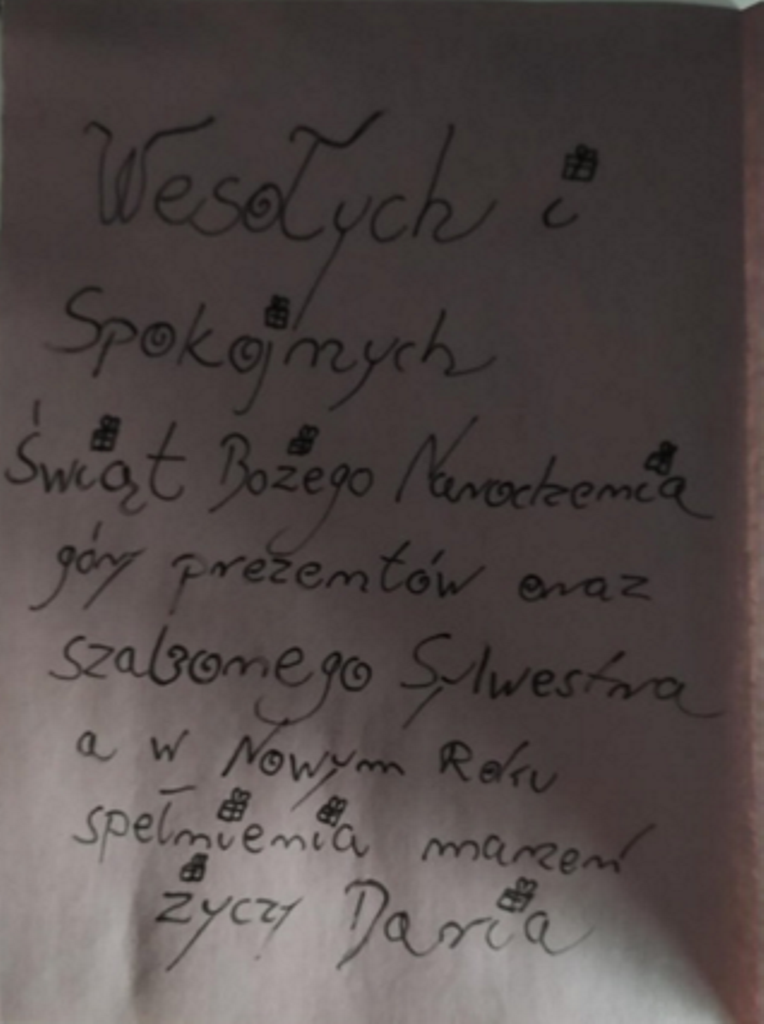 Wesołych i
Spokojnych
Świąt Bożego Narodzenia
góry prezentów oraz
szalonego Sylwestra
a w Nowym Roku
spełnienia marzeń
życzy Daria